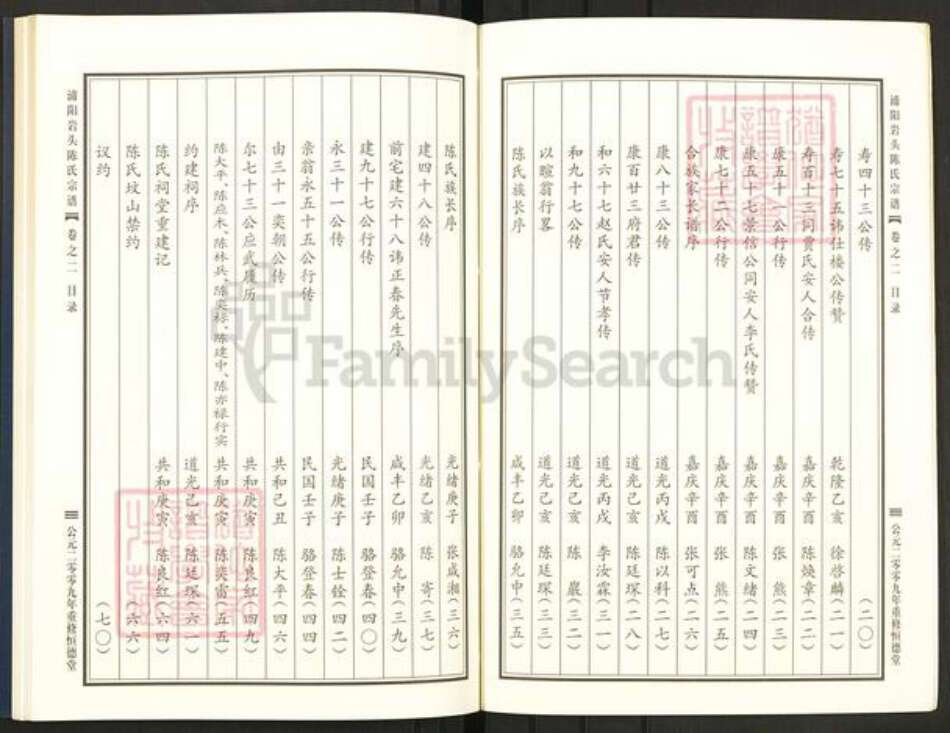 浦阳岩头陈氏宗谱 卷之二 目录
公元二零零九年重修恒德堂
寿四十三公传 (二〇)
寿七十五讳仕楼公传赞 乾隆乙亥 徐啓麟(二一)
寿百十三同贾氏安人合传 嘉庆辛酉 陈焕章(二二)
康五十一公行传 嘉庆辛酉 张 熊(二三)
康五十七景信公同安人李氏传赞 嘉庆辛酉 陈文绪(二四)
康七十二公行传 嘉庆辛酉 张 熊(二五)
合族家长谱序 嘉庆辛酉 张可点(二六)
康八十三公传 道光丙戌 陈以科(二七)
康百廿三府君传 道光己亥 陈廷琛(二八)
和六十七赵氏安人节孝传 道光丙戌 李汝霖(三一)
和九十七公传 道光己亥 陈 巖(三二)
以暄翁行畧 道光己亥 陈廷琛(三三)
陈氏族长序 咸丰乙卯 骆允中(三五)
陈氏族长序 光绪庚子 张咸湘(三六)
建四十八公传 光绪乙亥 陈 寄(三七)
前宅建六十八讳正春先生序 咸丰乙卯 骆允中(三九)
建九十七公行传 民国壬子 骆登春(四〇)
永三十一公传 光绪庚子 陈士铨(四二)
亲翁永五十五公行传 民国壬子 骆登春(四四)
由三十一奕朝公传 共和己丑 陈大平(四六)
尔七十三公应武履历 共和庚寅 陈良红(四九)
陈大平、陈应木、陈林兵、陈奕标、陈建中、陈亦禄行实 共和庚寅 陈奕雷(五五)
约建祠序 道光己亥 陈廷琛(六一)
陈氏祠堂重建记 共和庚寅 陈良红(六四)
陈氏坟山禁约 (六六)
议约 (七〇)
浦阳岩头陈氏宗谱 卷之二 目录
公元二零零九年重修恒德堂
FamilySearch